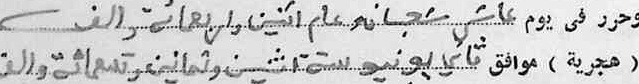 وحرر فى يوم عاشر شعبان عام اثنين واربعمائة والف
( هجرية ) موافق ثانى يونيو سنة اثنين وثمانين وتسعمائة والف